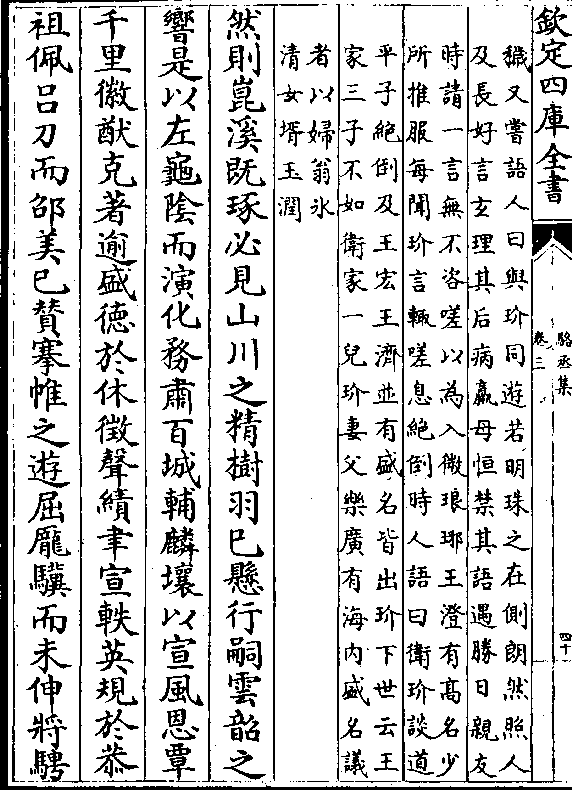 欽定四庫全書
駱丞集
卷三
四十
穢又嘗語人曰與玠同遊若明珠之在側朗然照人
及長好言玄理其后病羸母恒禁其語遇勝日親友
時請一言無不咨嗟以為入微琅琊王澄有髙名少
所推服每聞玠言輙嗟息絶倒時人語曰衛玠談道
平子絶倒及王宏王濟並有盛名皆出玠下世云王
家三子不如衛家一兒玠妻父樂廣有海内盛名議
者以婦翁氷
清女壻玉潤
然則崑溪既琢必見山川之精樹羽已懸行嗣雲韶之
響是以左龜陰而演化務肅百城輔麟壤以宣風恩覃
千里徽猷克著逾盛徳於休徴聲績聿宣軼英規於恭
祖佩吕刀而邵美已賛搴帷之遊屈龎驥而未伸將騁